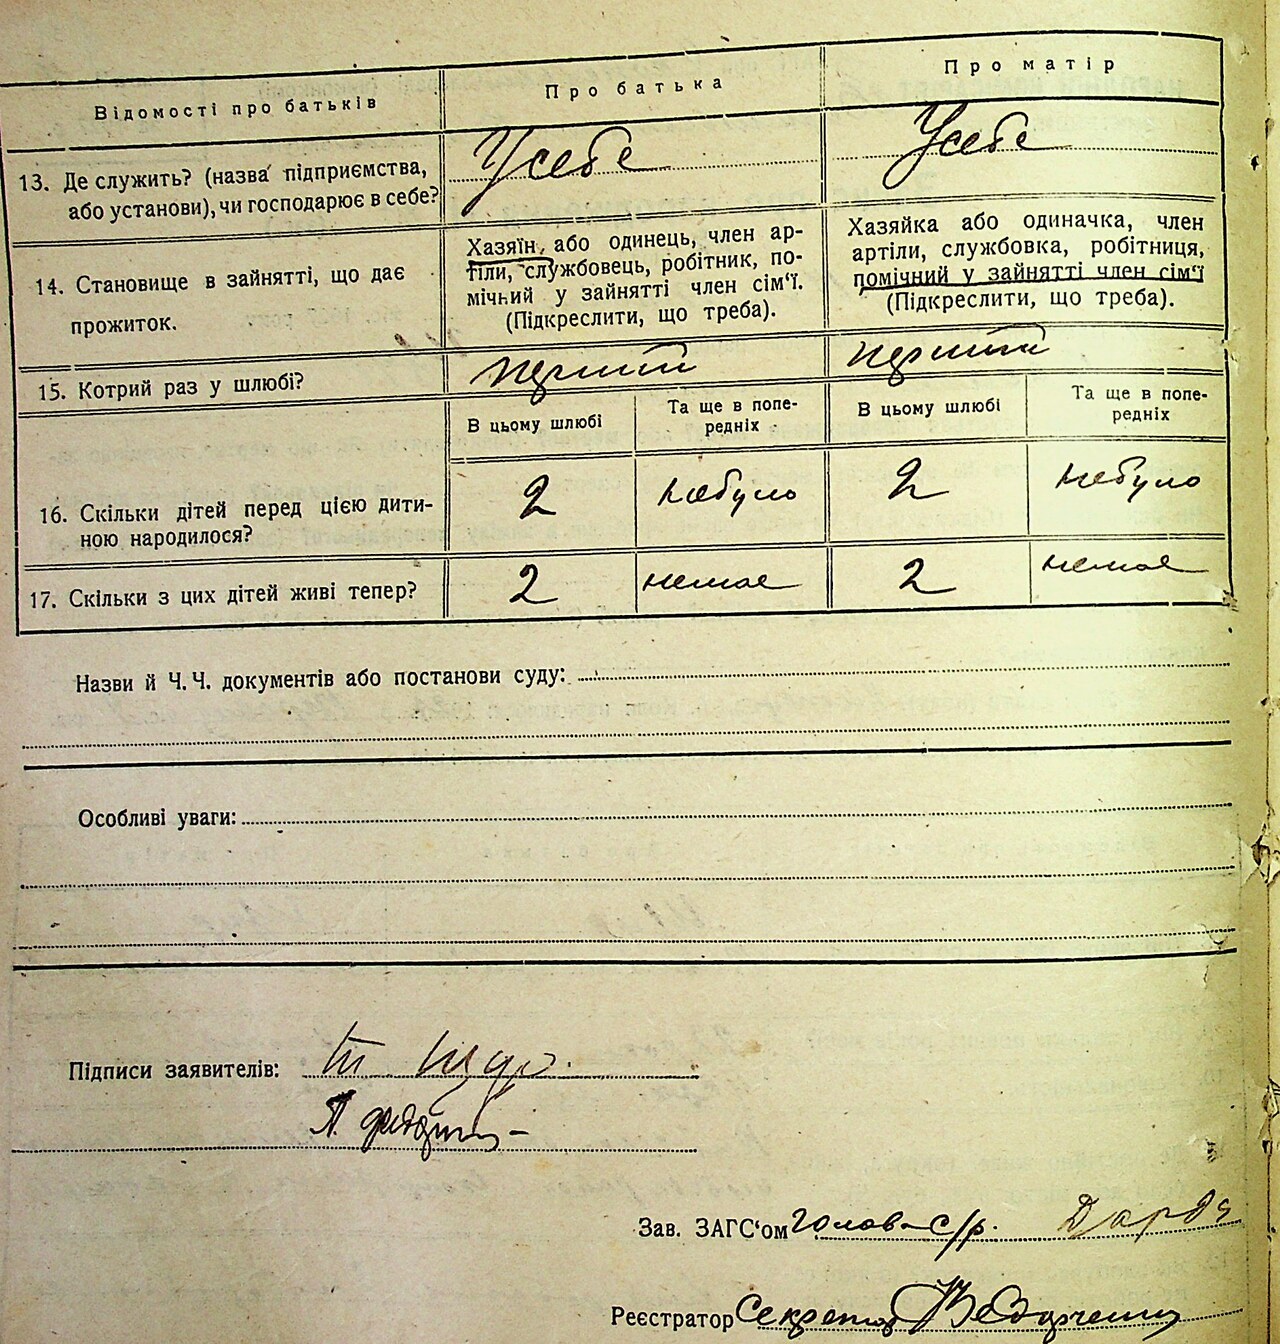 Відомості про батьків
Про батька
Про матір
13. Де служить? (назва підприємства,
або установи), чи господарює в себе?
У себе
У себе
14. Становище в зайнятті, що дає
прожиток.
Хазяїн, або одинець, член ар-
тіли, службовець, робітник, по-
мічний у зайнятті член сім'ї.
(Підкреслити, що треба).
Хазяйка або одиначка, член
артіли, службовка, робітниця,
помічний у зайнятті член сім'ї
(Підкреслити, що треба).
15. Котрий раз у шлюбі?
перший
перший
В цьому шлюбі
Та ще в попе-
редніх
В цьому шлюбі
Та ще в попе-
редніх
16. Скільки дітей перед цією дити-
ною народилося?
2
небуло
2
небуло
17. Скільки з цих дітей живі тепер?
2
немає
2
немає
Назви й Ч. Ч. документів або постанови суду:
Особливі уваги:
Підписи заявителів:
Зав. ЗАГС'ом голова с/р.
Реєстратор Секретар